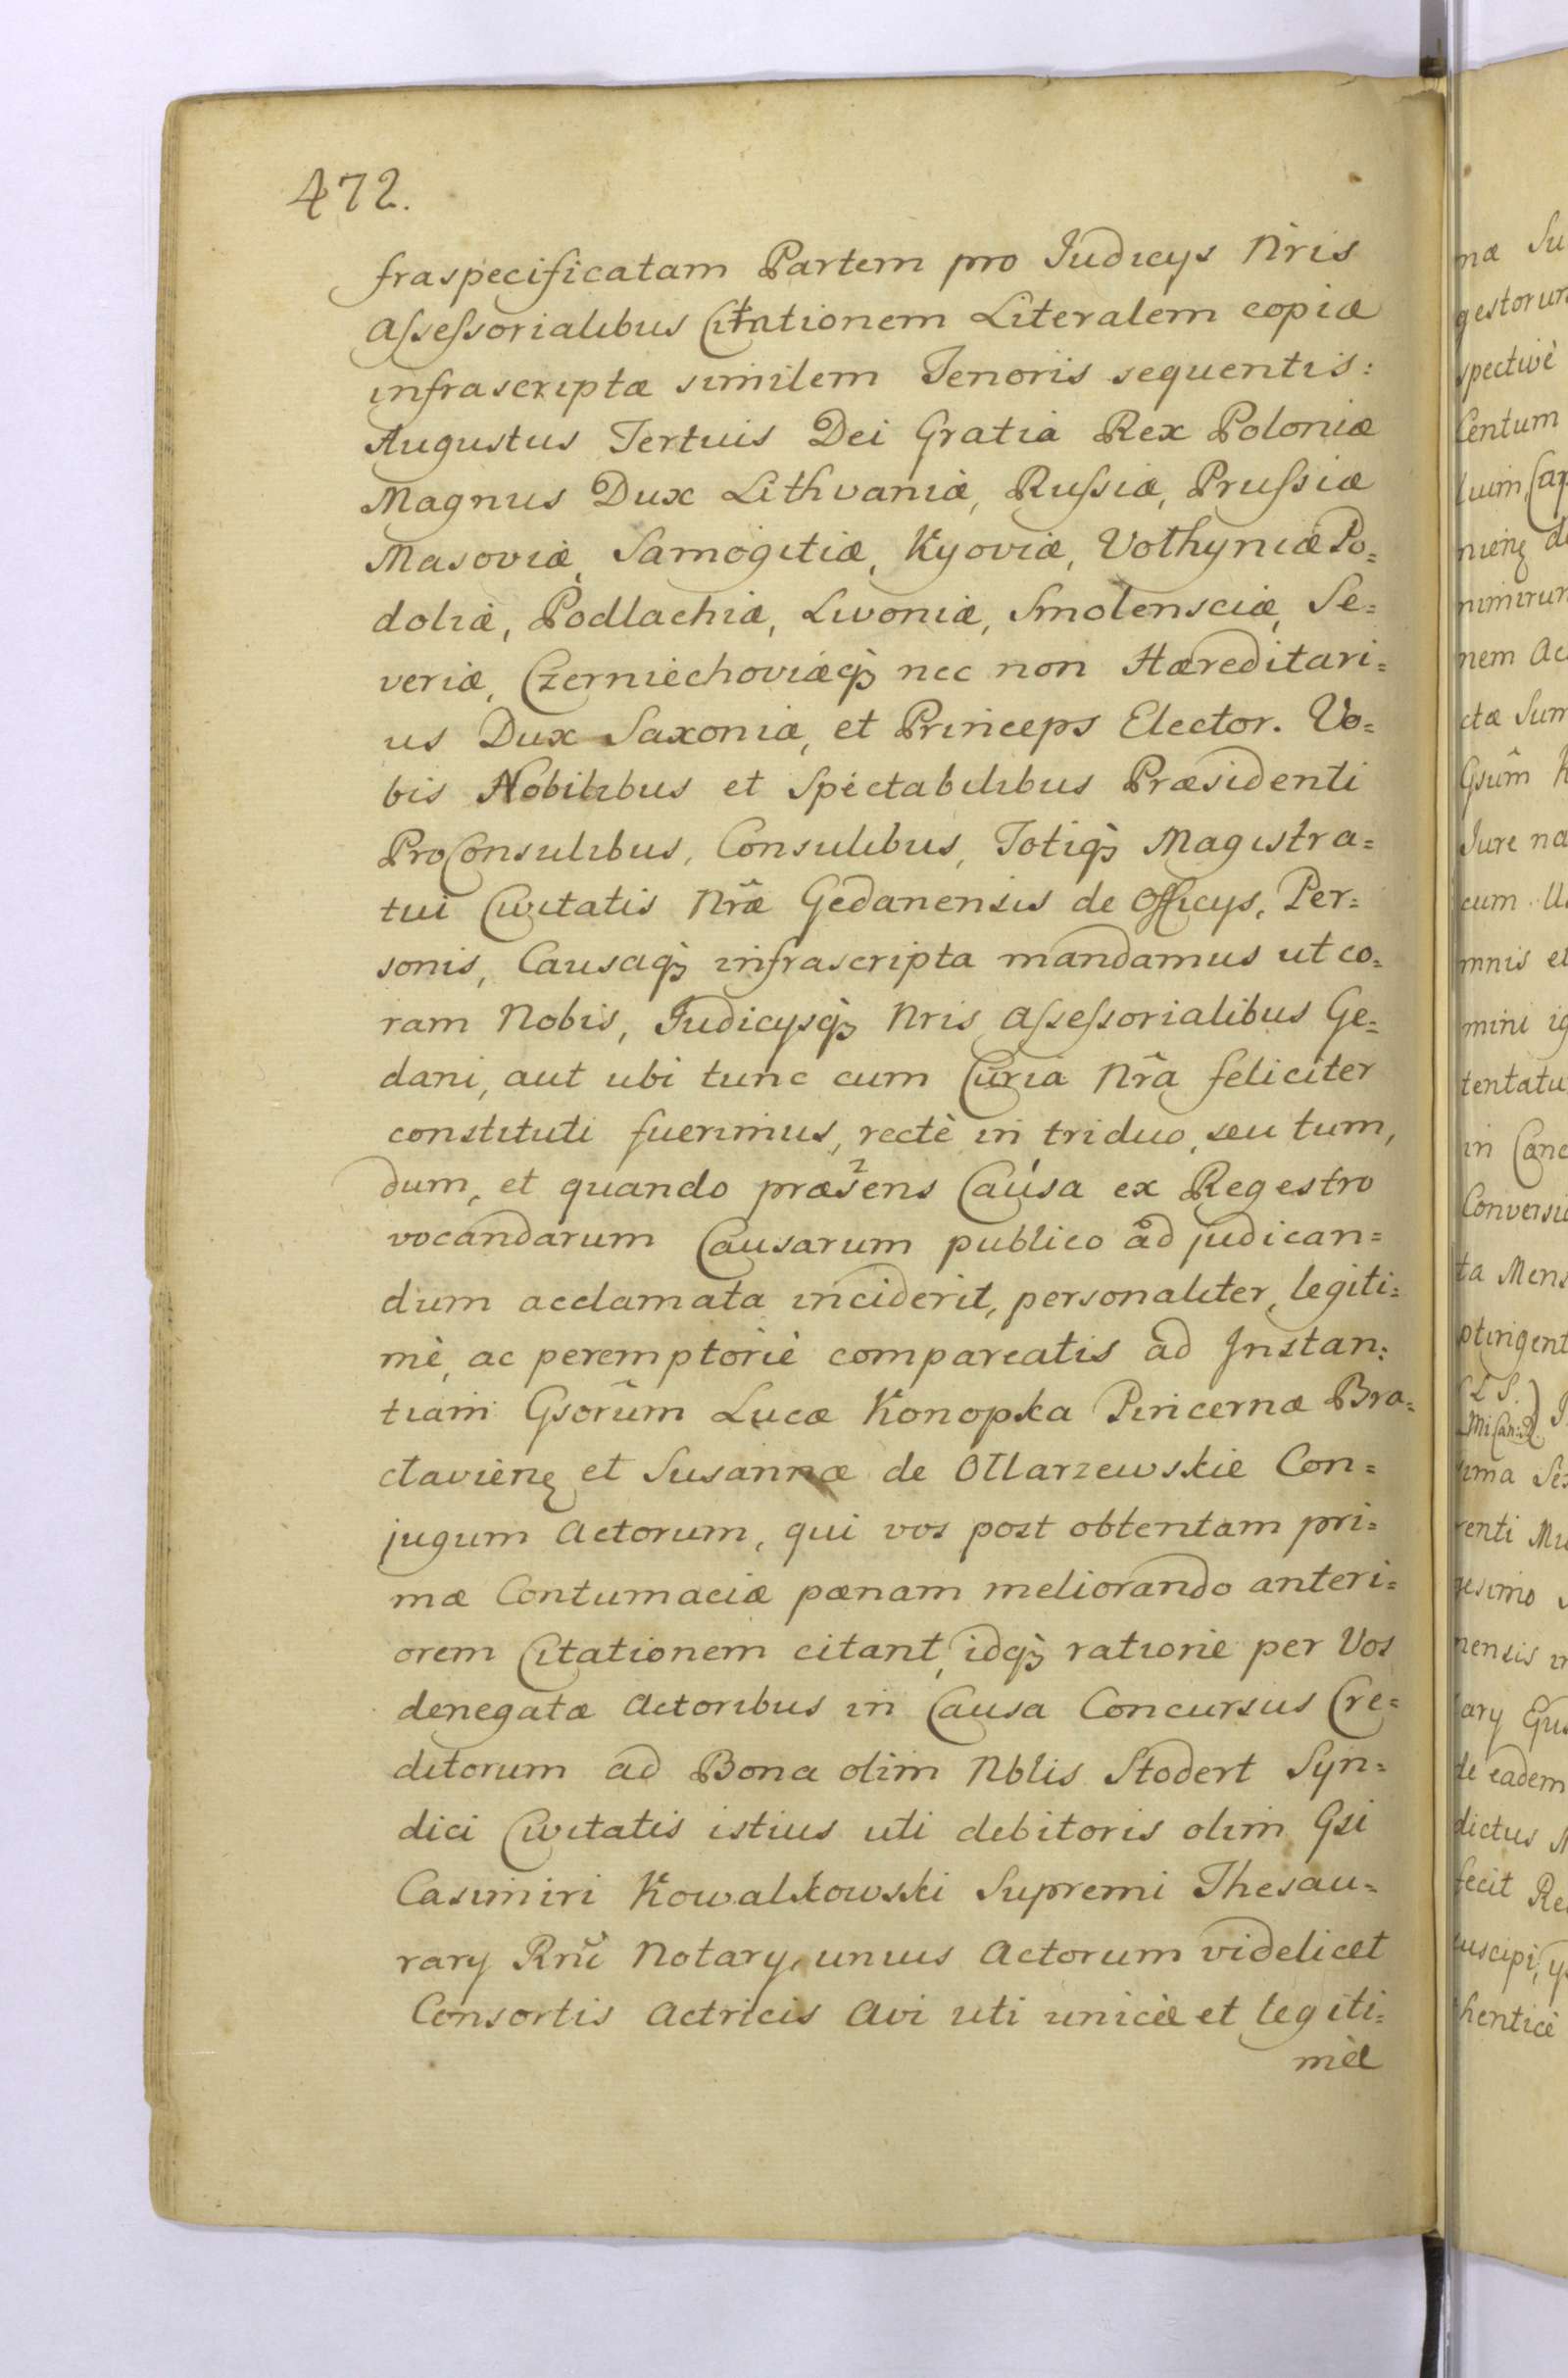 472.
fraspecificatam Partem pro Judicys Nris
Assessorialibus Citationem Literalem copiæ
infrascriptæ similem Tenoris sequentis:
Augustus Tertius Dei Gratiâ Rex Poloniæ
Magnus Dux Lithvaniæ, Russiæ, Prussiæ
Masoviæ, Samogitiæ, Kyoviæ, Volhyniæ Po=
doliæ, Podlachiæ, Livoniæ, Smolensciæ, Se=
veriæ, Czerniechoviæq3 nec non Hæreditari=
us Dux Saxoniæ, et Princeps Elector. Vo=
bis Nobilibus et Spectabilibus Præsidenti
ProConsulibus, Consulibus, Totiq3 Magistra=
tui Civitatis Nræ Gedanensis de Officys, Per=
sonis, Causaq3 infrascripta mandamus ut co=
ram Nobis, Judicysq3 Nris Assessorialibus Ge=
dani, aut ubi tunc cum Curia Nrâ feliciter
constituti fuerimus, rectè in triduo, seu tum,
dum, et quando præsens Causa ex Regestro
vocandarum Causarum publico ad judican=
dum acclamata inciderit, personaliter, legiti=
mè, ac peremptoriè compareatis ad Instan=
tiam Gsorûm Lucæ Konopka Pincernæ Bra=
ctavienę et Susannæ de Ottarzewskie Con=
jugum Actorum, qui vos post obtentam pri=
mæ Contumaciæ pænam meliorando anteri=
orem Citationem citant, idq3 ratione per Vos
denegatæ Actoribus in Causa Concursus Cre=
ditorum ad Bona olim Nblis Stodert Syn=
dici Civitatis istius uti debitoris olim Gsi
Casimiri Kowalkowski Supremi Thesau=
rary Rnî Notary, unius Actorum videlicet
Consortis Actricis Avi uti unicæ et legiti=
mæ